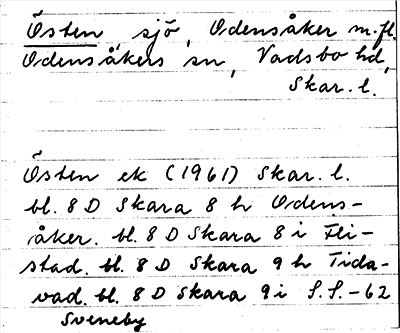 Östen, sjö, Odensåker m.fl.
Odensåkers sn, Vadsbo hd,
Skar. l.
Östen ek (1961) Skar. l.
bl. 8 D Skara 8 h Odens-
åker. bl. 8 D Skara 8 i Fli-
stad. bl. 8 D Skara 9 h Tida-
vad. bl. 8 D Skara 9 i S.S.-62
Sveneby